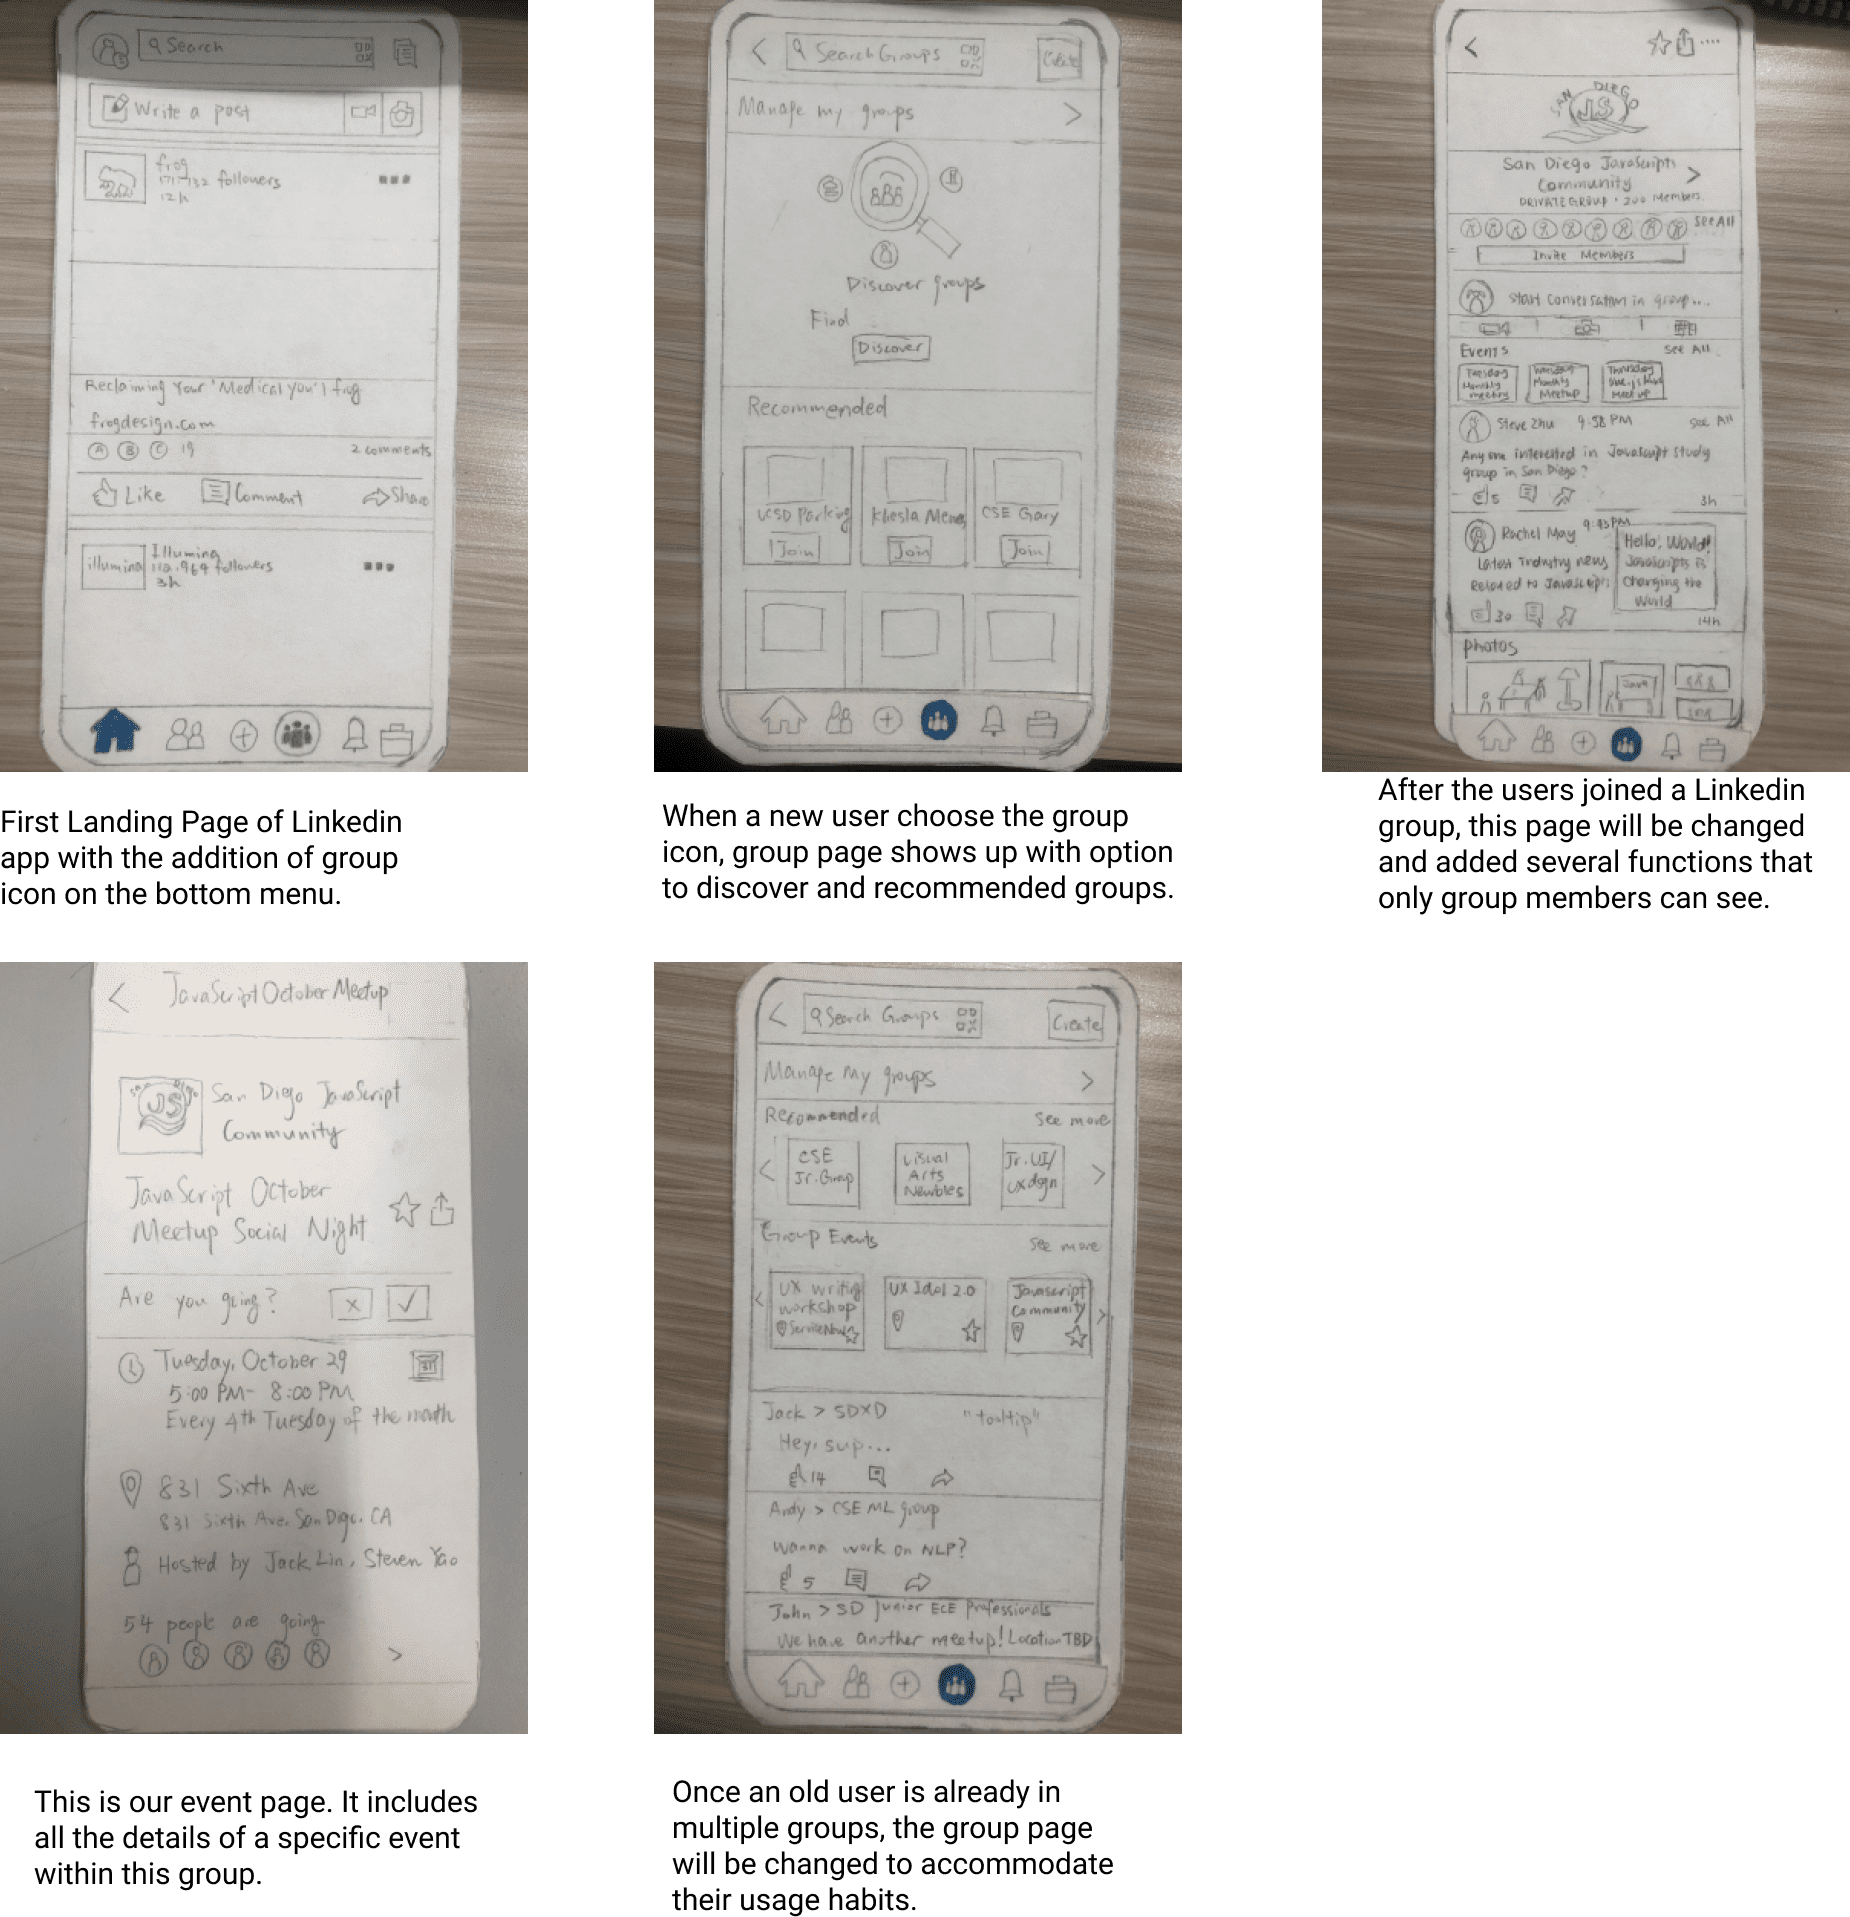 Search
Write a post
frog
171,132 followers
12h
Reclaiming Your 'Medical you' | frog
frogdesign.com
A B C 19
2 comments
Like Comment Share
illumina
Illumina
112.969 followers
3h
First Landing Page of Linkedin
app with the addition of group
icon on the bottom menu.
Search Groups
Create
Manage my groups >
Discover groups
Find
Discover
Recommended
UCSD Parking
CSE Gary
Join
Join
Join
When a new user choose the group
icon, group page shows up with option
to discover and recommended groups.
SAN DIEGO
JS
San Diego JavaScripts
Community >
PRIVATE GROUP · 200 Members.
See All
Invite Members
Start Conversation in group....
Events See All
Tuesday
Monthly
meeting
Monthly
Meetup
Thursday
Meet up
Steve Zhu 9:58 PM See All
Any one interested in JavaScript Study
group in San Diego?
5
3h
Rachel May 9:43 PM
Latest Industry news
Related to JavaScripts
Hello, World!
JavaScripts is
Changing the
World
30
14h
Photos
Java
After the users joined a Linkedin
group, this page will be changed
and added several functions that
only group members can see.
< JavaScript October Meetup
San Diego
JS
San Diego JavaScript
Community
JavaScript October
Meetup Social Night
Are you going?
Tuesday, October 29
5:00 PM- 8:00 PM
Every 4th Tuesday of the month
31
831 Sixth Ave
831 Sixth Ave. San Diego. CA
Hosted by Jack Lin, Steven Yao
54 people are going
>
This is our event page. It includes
all the details of a specific event
within this group.
< Search Groups
Create
Manage My groups >
Recommended See more
CSE
Jr. Group
Visual
Arts
Newbies
Jr. UI/
UX dsgn
Group Events See more
UX writing
workshop
ServiceNow
UX Idol 2.0
Javascript
Community
Jack > SDXD "tooltip"
Hey, sup...
14
Andy > CSE ML group
Wanna work on NLP?
5
John > SD Junior ECE Professionals
We have another meetup! Location TBD
Once an old user is already in
multiple groups, the group page
will be changed to accommodate
their usage habits.